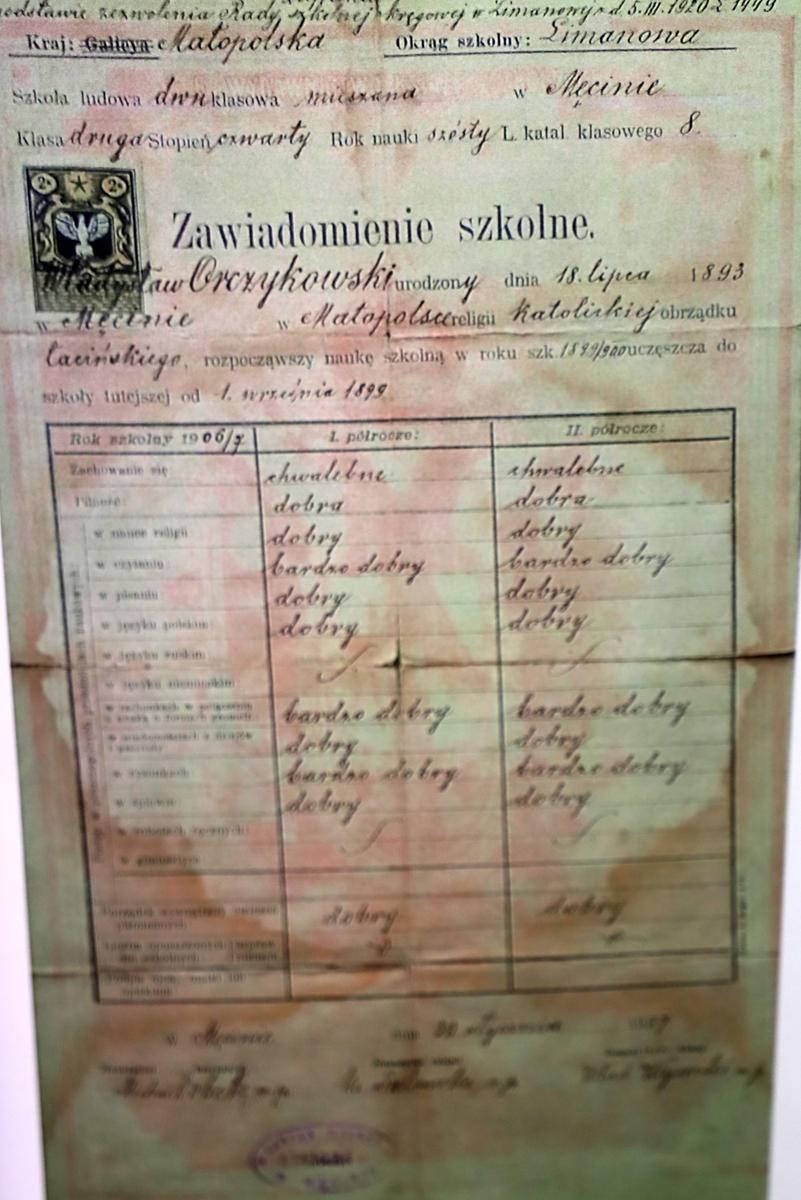 podstawie zezwolenia Rady szkolnej okręgowej w Limanowej z d. 5.III.1920 L 1449
Kraj: Galicya Małopolska Okrąg szkolny: Limanowa
Szkoła ludowa dwuklasowa mieszana w Męcinie
Klasa druga Stopień czwarty Rok nauki szósty L. katal. klasowego 8.
2 2
Zawiadomienie szkolne.
Władysław Orczykowski urodzony dnia 18. lipca 1893
w Męcinie w Małopolsce religii katolickiej obrządku
łacińskiego, rozpocząwszy naukę szkolną w roku szk. 1899/900 uczęszcza do
szkoły tutejszej od 1. września 1899
Rok szkolny 1906/7 I. półrocze: II. półrocze:
Zachowanie się chwalebne chwalebne
Pilność: dobra dobra
w nauce religii dobry dobry
w czytaniu bardzo dobry bardzo dobry
w pisaniu dobry dobry
w języku polskim dobry dobry
w języku ruskim
w języku niemieckim
w rachunkach w połączeniu z nauką o formach bardzo dobry bardzo dobry
w wiadomościach z dziejów i przyrody dobry dobry
w rysunkach bardzo dobry bardzo dobry
w śpiewie dobry dobry
w robotach ręcznych
w gimnastyce
Porządek zewnętrzny dobry dobry
w Męcinie dnia 30 stycznia